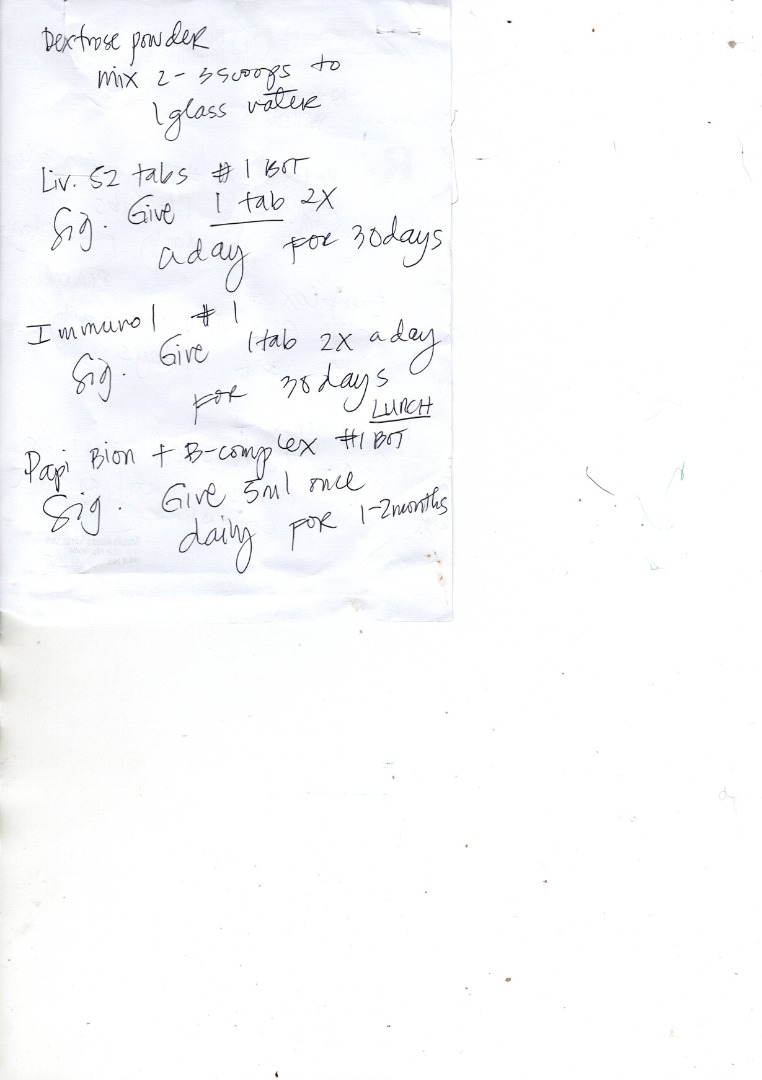 Dextrose powder
mix 2-3 scoops to
1 glass water
Liv. 52 tabs # 1 BOT
Sig. Give 1 tab 2X
a day for 30 days
Immunol # 1
Sig. Give 1 tab 2X a day
for 30 days
LUNCH
Papi Bion + B-complex #1 BOT
Sig. Give 5ml once
daily for 1-2 months